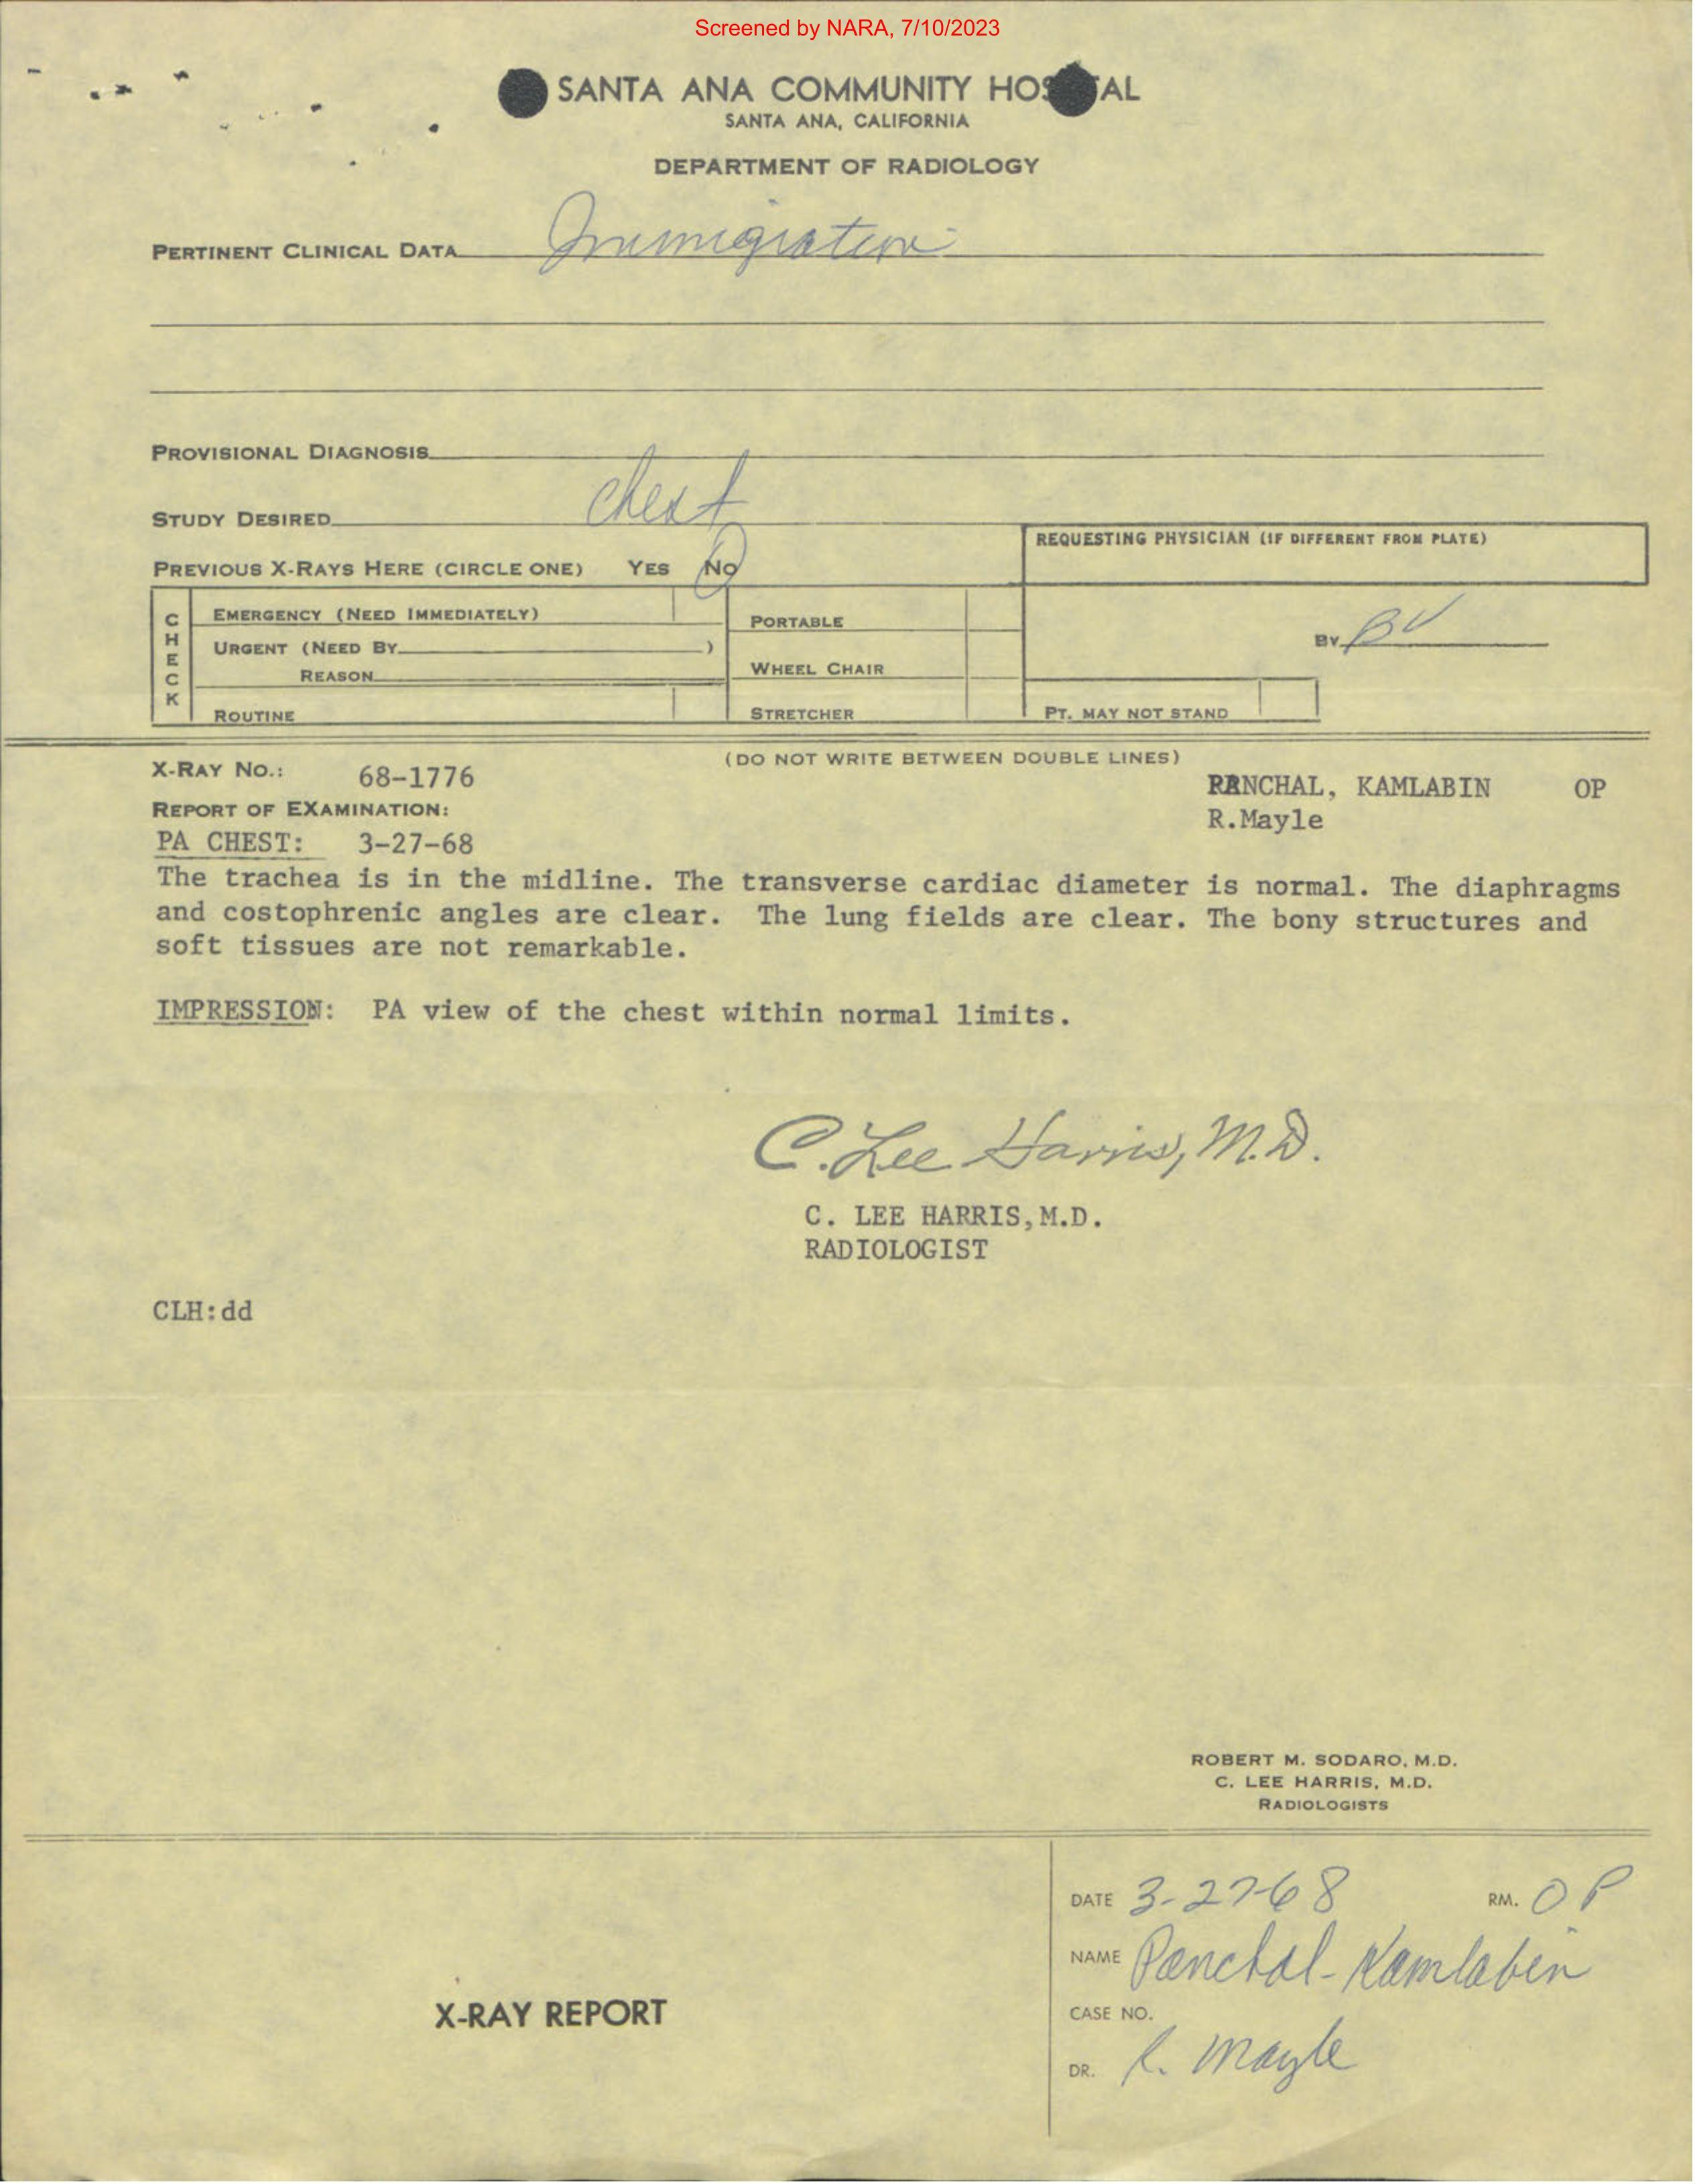 Screened by NARA, 7/10/2023
SANTA ANA COMMUNITY HOS AL
SANTA ANA, CALIFORNIA
DEPARTMENT OF RADIOLOGY
PERTINENT CLINICAL DATA Immigration
PROVISIONAL DIAGNOSIS
STUDY DESIRED chest
REQUESTING PHYSICIAN (IF DIFFERENT FROM PLATE)
PREVIOUS X-RAYS HERE (CIRCLE ONE) YES NO
CHECK
EMERGENCY (NEED IMMEDIATELY)
PORTABLE
URGENT (NEED BY )
BY BV
REASON
WHEEL CHAIR
ROUTINE
STRETCHER
PT. MAY NOT STAND
(DO NOT WRITE BETWEEN DOUBLE LINES)
X-RAY NO.: 68-1776
PANCHAL, KAMLABIN OP
REPORT OF EXAMINATION:
R.Mayle
PA CHEST: 3-27-68
The trachea is in the midline. The transverse cardiac diameter is normal. The diaphragms
and costophrenic angles are clear. The lung fields are clear. The bony structures and
soft tissues are not remarkable.
IMPRESSION: PA view of the chest within normal limits.
C. Lee Harris, M.D.
C. LEE HARRIS,M.D.
RADIOLOGIST
CLH:dd
ROBERT M. SODARO, M.D.
C. LEE HARRIS, M.D.
RADIOLOGISTS
DATE 3-27-68 RM. OP
NAME Panchal-Kamlabin
X-RAY REPORT
CASE NO.
DR. R. Mayle